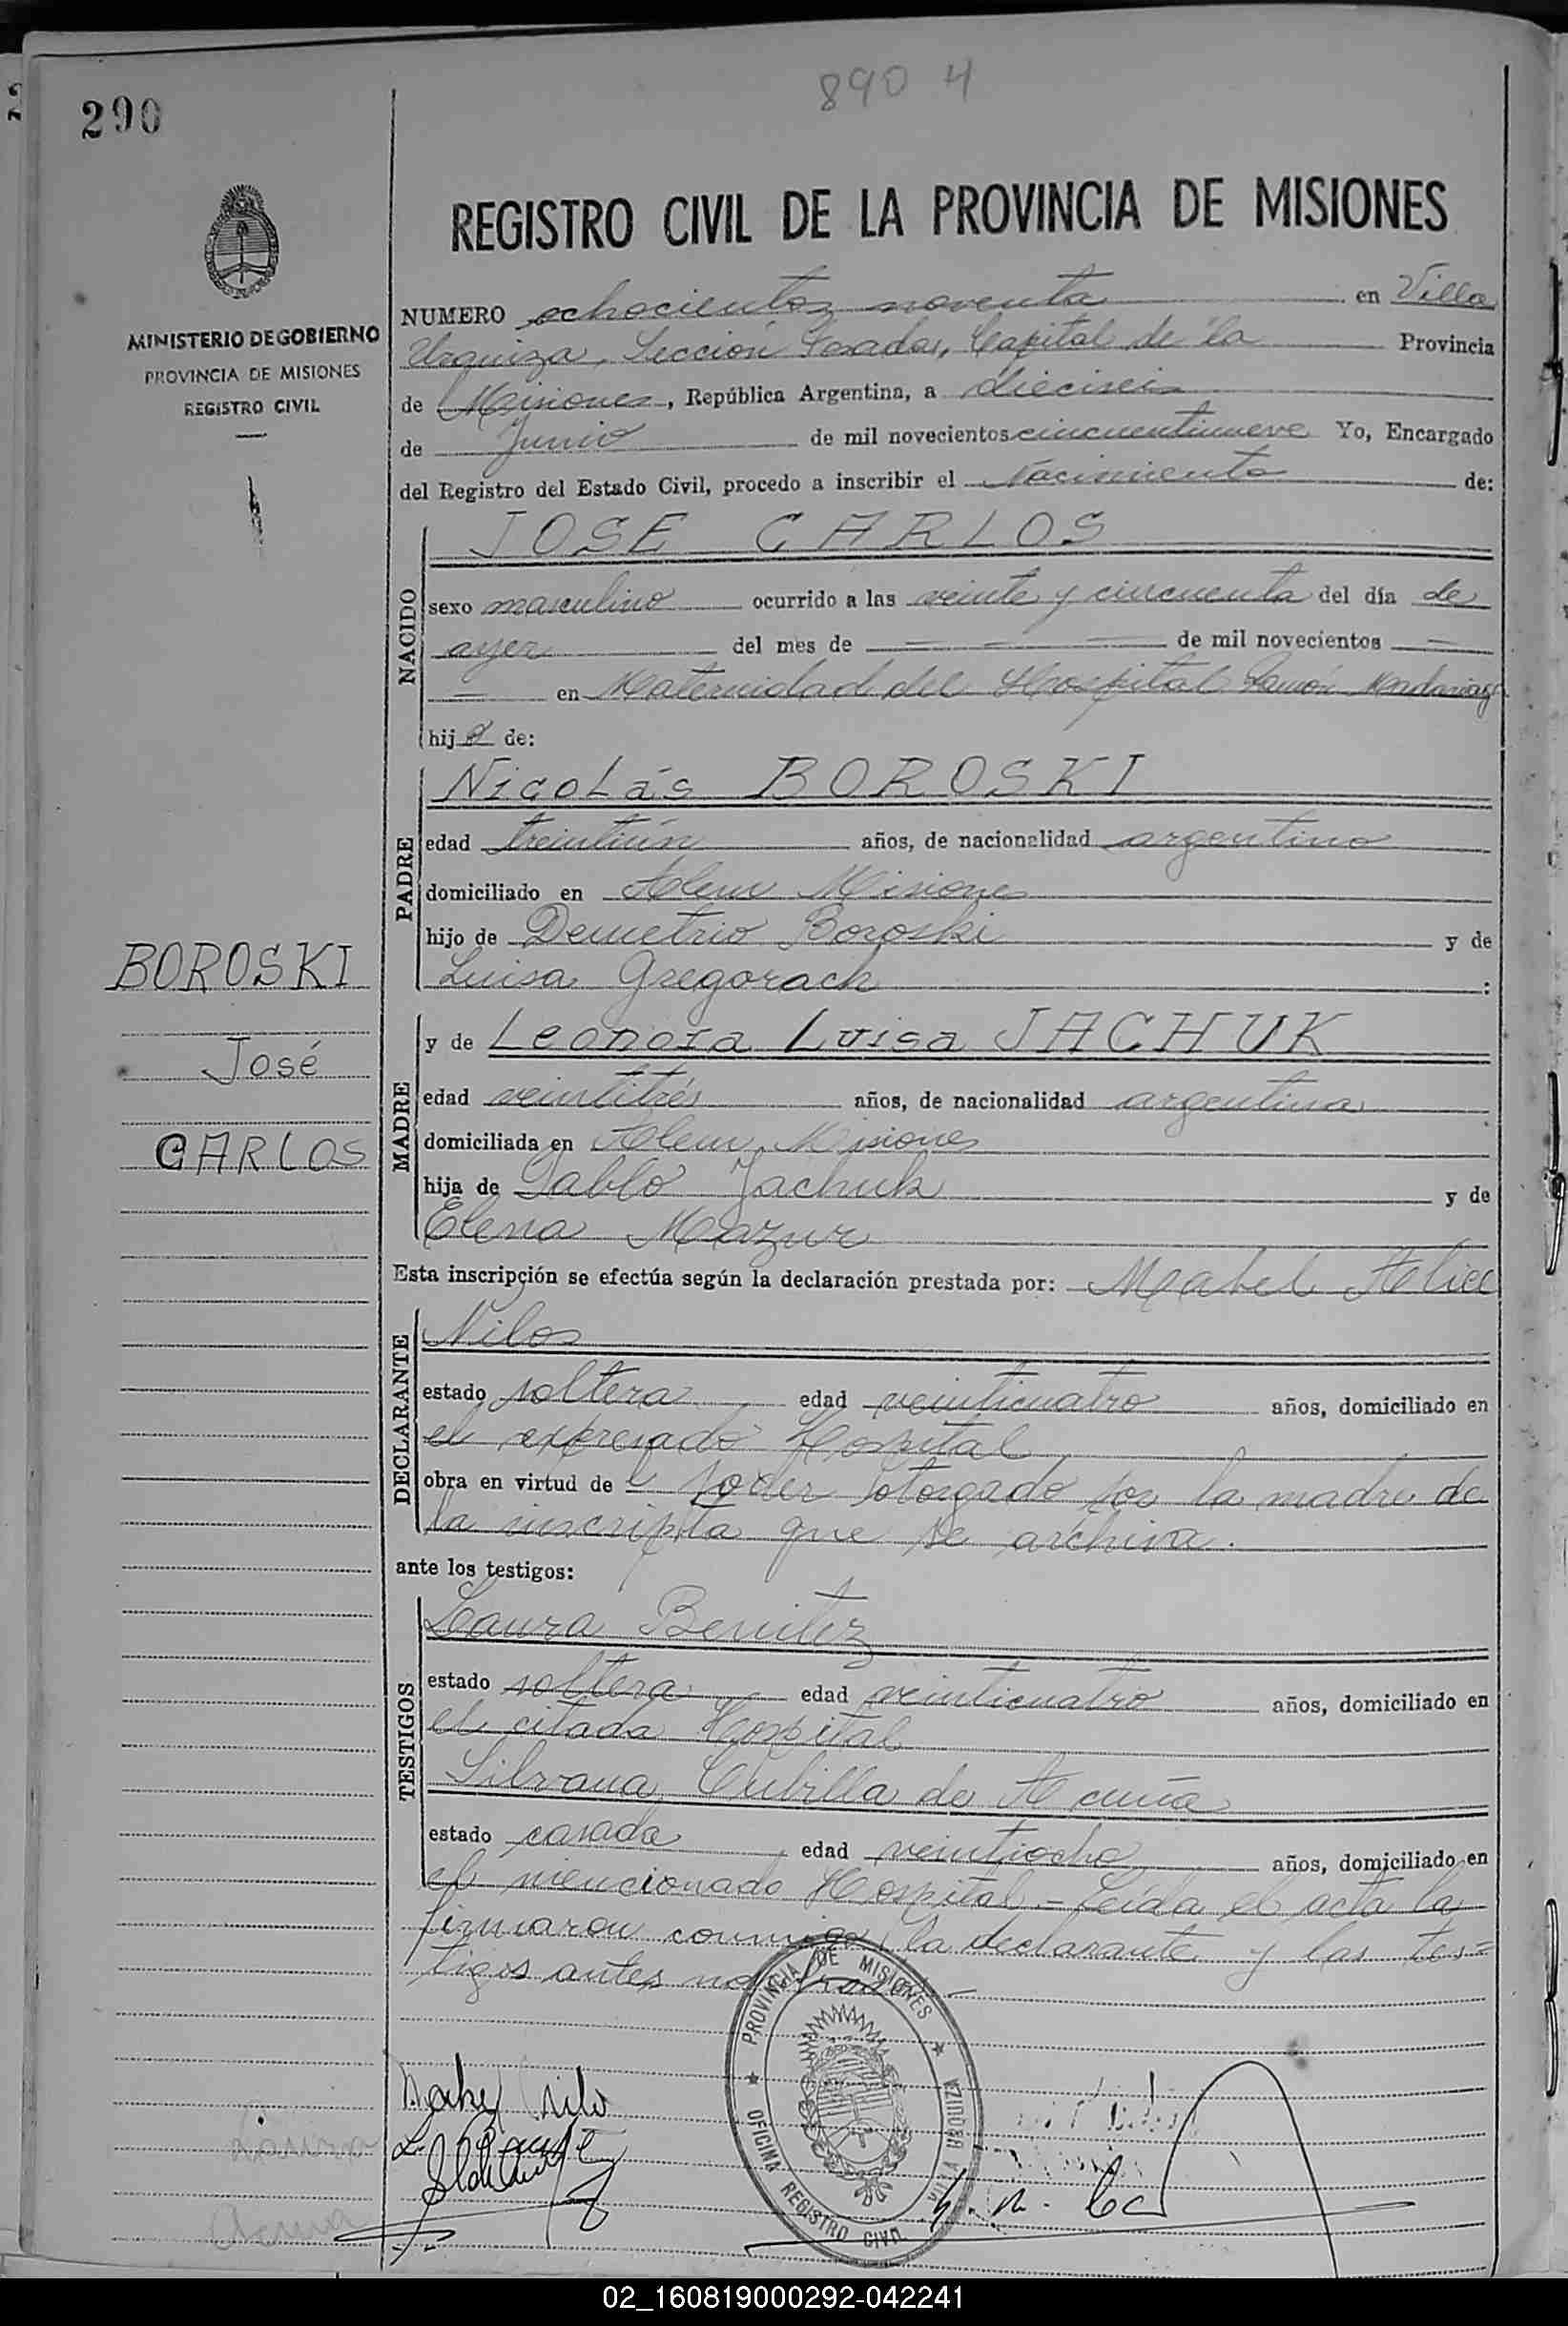 890 4
290
REGISTRO CIVIL DE LA PROVINCIA DE MISIONES
MINISTERIO DE GOBIERNO
PROVINCIA DE MISIONES
REGISTRO CIVIL
NUMERO ochocientos noventa en Villa
Urquiza, Sección Posadas, Capital de la Provincia
de Misiones, República Argentina, a dieciseis
de Junio de mil novecientos cincuentinueve Yo, Encargado
del Registro del Estado Civil, procedo a inscribir el Nacimiento de:
NACIDO
JOSE CARLOS
sexo masculino ocurrido a las veinte y cincuenta del día de
ayer del mes de = = = de mil novecientos =
= en Maternidad del Hospital Ramón Madariaga
hijo de:
PADRE
Nicolás BOROSKI
edad treintiún años, de nacionalidad argentino
domiciliado en Alem Misiones
hijo de Demetrio Boroski y de
Luisa Gregorach :
BOROSKI
José
CARLOS
MADRE
y de Leonora Luisa JACHUK
edad veintitrés años, de nacionalidad argentina
domiciliada en Alem Misiones
hija de Pablo Jachuk y de
Elena Mazur
Esta inscripción se efectúa según la declaración prestada por: Mabel Alice
DECLARANTE
Nilos
estado soltera edad veinticuatro años, domiciliado en
el expresado Hospital
obra en virtud de l poder otorgado por la madre de
la inscripta que se archiva.
ante los testigos:
TESTIGOS
Laura Benitez
estado soltera edad veinticuatro años, domiciliado en
el citada Hospital
Silvana Cubilla de Acuña
estado casada edad veintiocho años, domiciliado en
el mencionado Hospital - Leída el acta la
firmaron conmigo, la declarante y las tes=
tigos antes
PROVINCIA DE MISIONES
OFICINA REGISTRO CIVIL
VILLA URQUIZA
Laura
Acuña
02_160819000292-042241